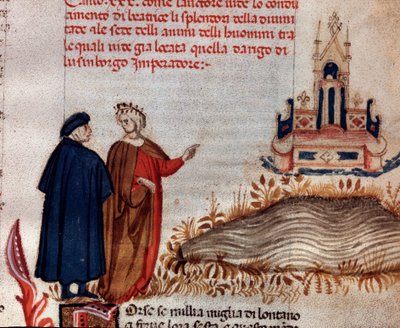 Canto.xxx. come lautore uide lo condu
cimento di beatrice li splendori della diuini
tade ale sete delli animi delli huomini tra
le quali uite gia locata quella darigo di
lusinborgo Imperatore:
Forse se millia miglia di lontano